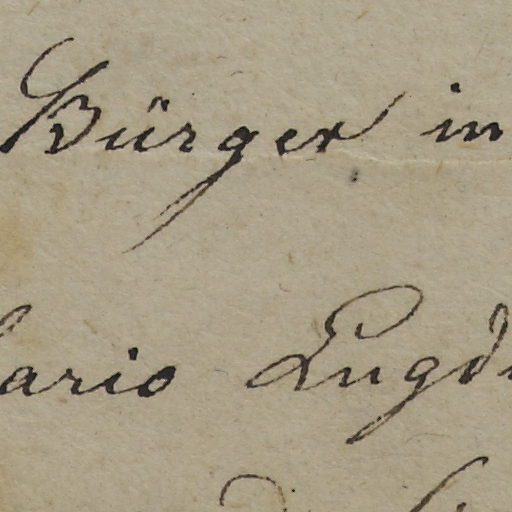 Bürger in
lario Lugd